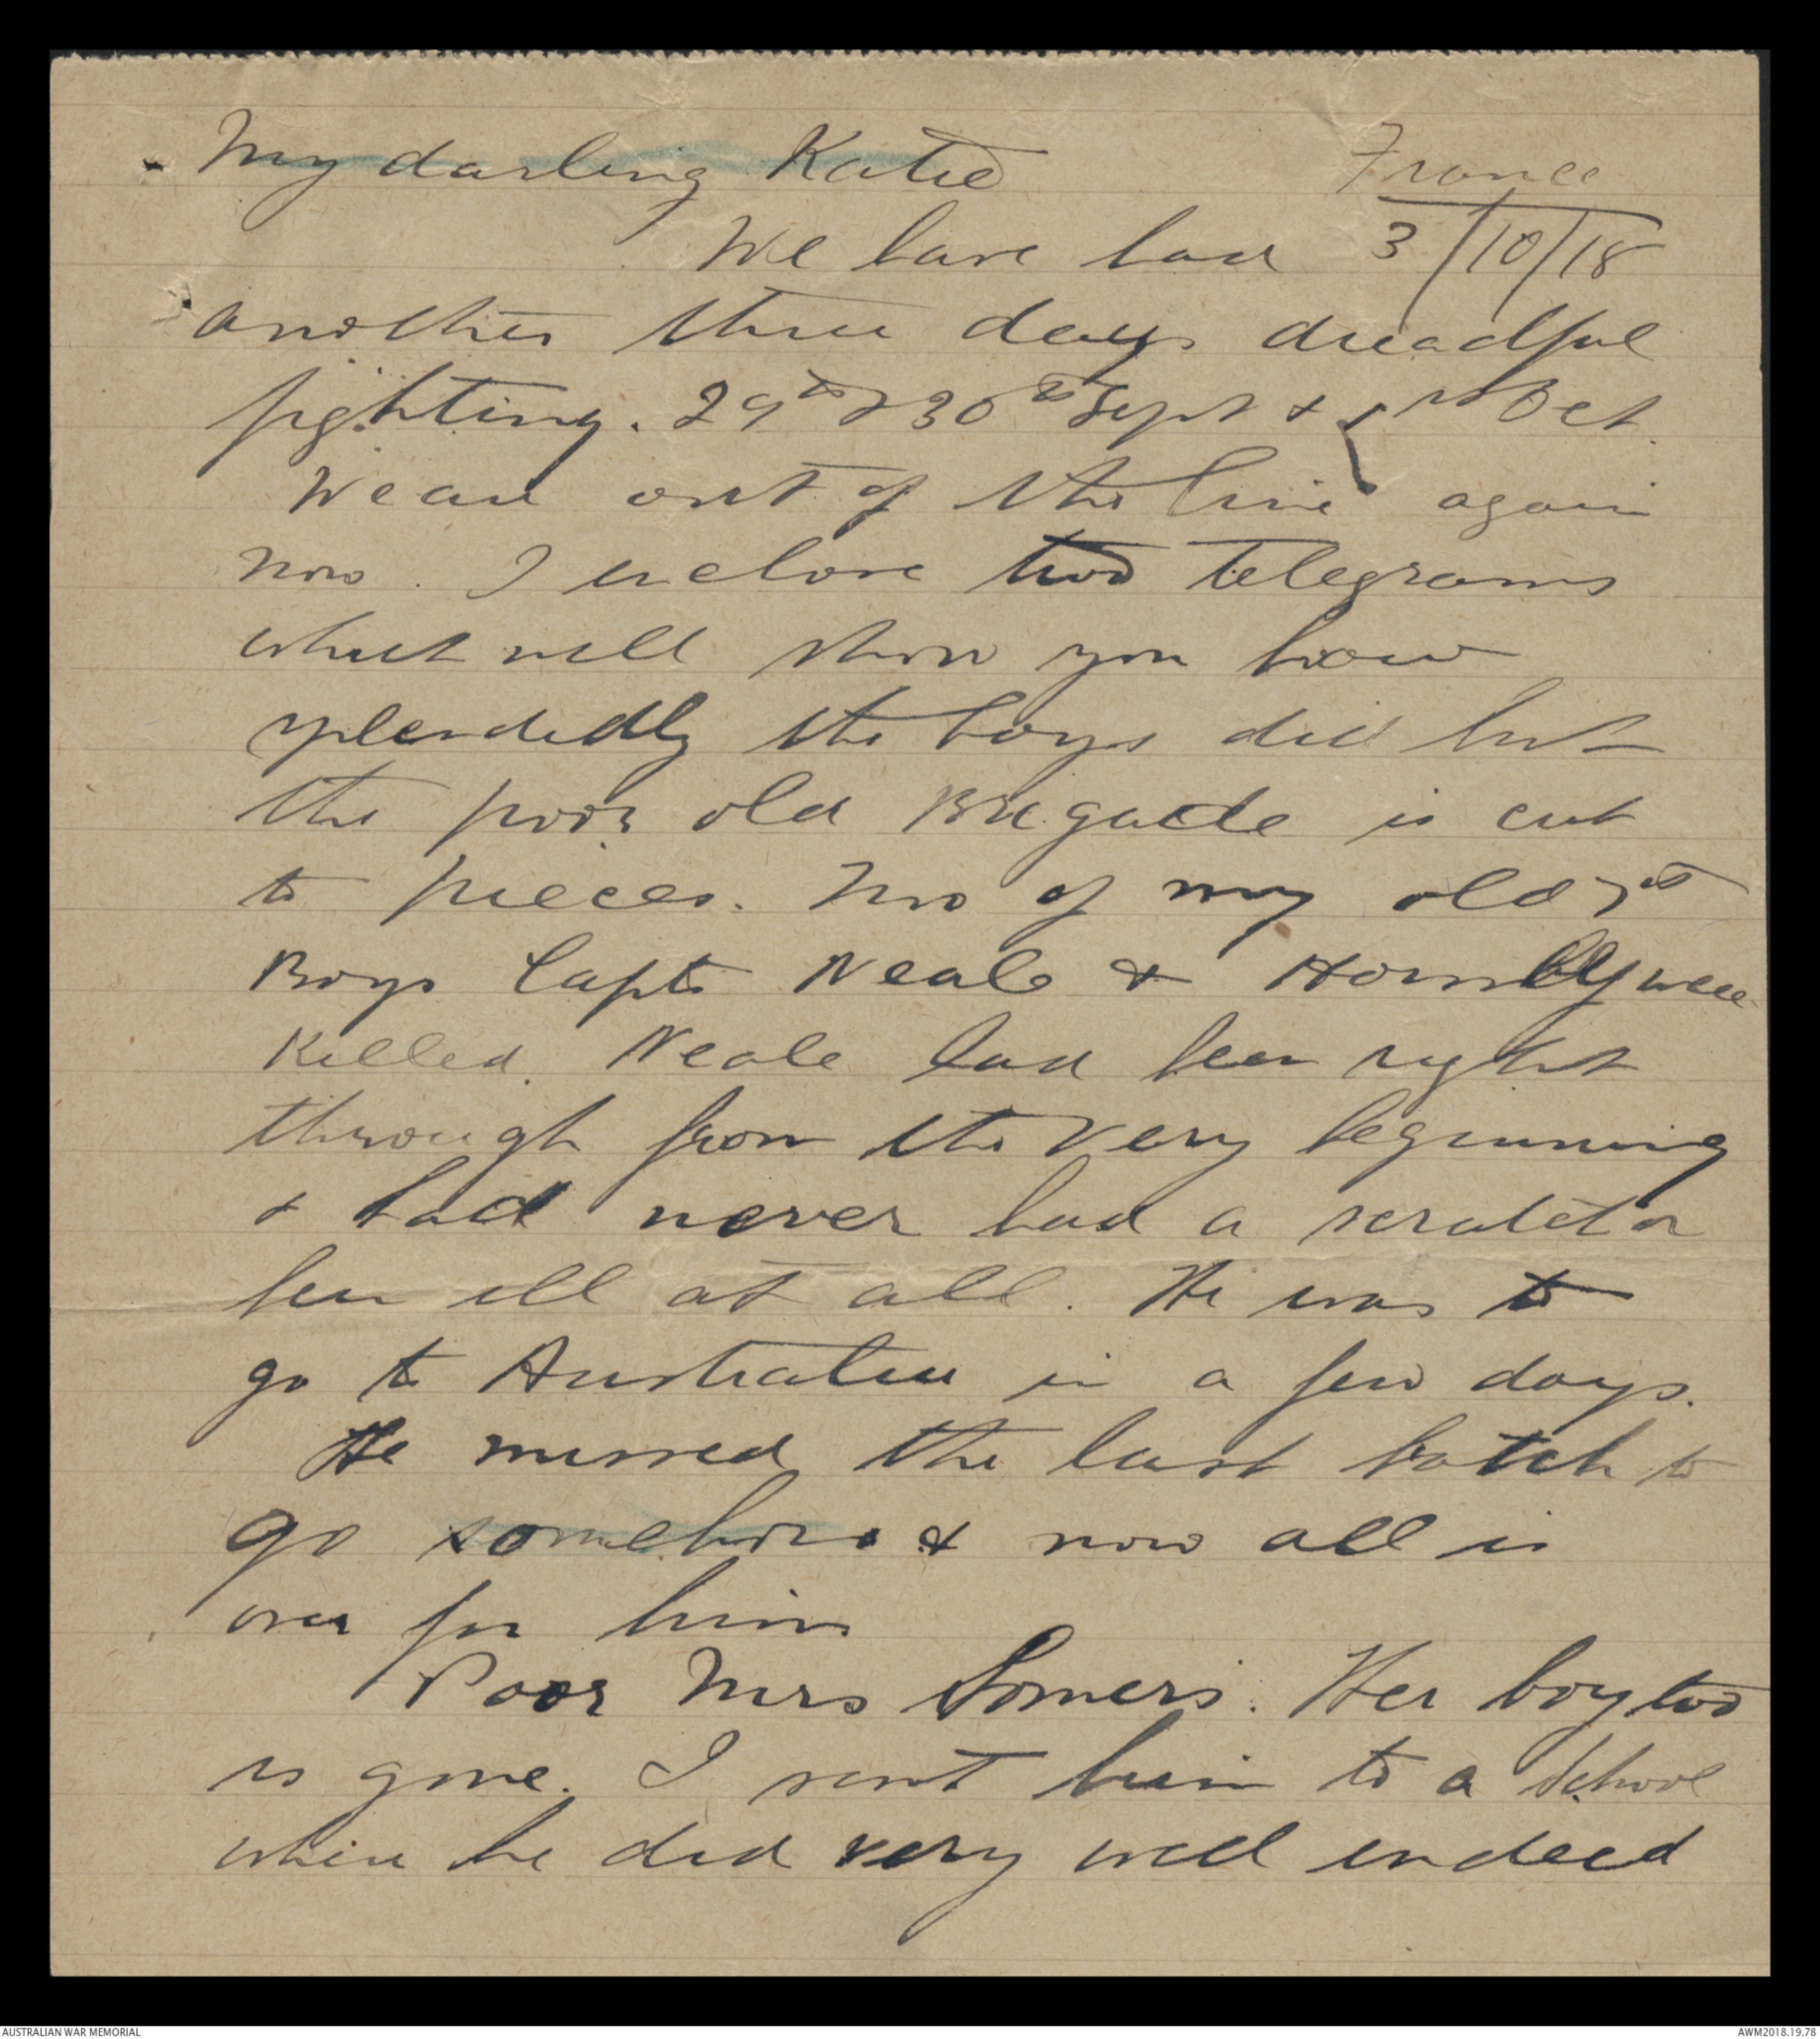 My darling Katie
France
3/10/18
We have had
another three days dreadful
fighting. 29th & 30th Sept & 1st Oct.
We are out of the line again
now. I enclose two telegrams
which will show you how
splendidly the boys did but
the poor old Brigade is cut
to pieces. Two of my old 7th
Boys Capts Neale & were
killed. Neale had been right
through from the very beginning
& had never had a scratch or
been ill at all. He was to
go to Australia in a few days.
He missed the last batch to
go somehow & now all is
over for him
Poor Mrs Somers. Her boy too
is gone. I sent him to a School
where he did very well indeed
AUSTRALIAN WAR MEMORIAL
AWM2018.19.78